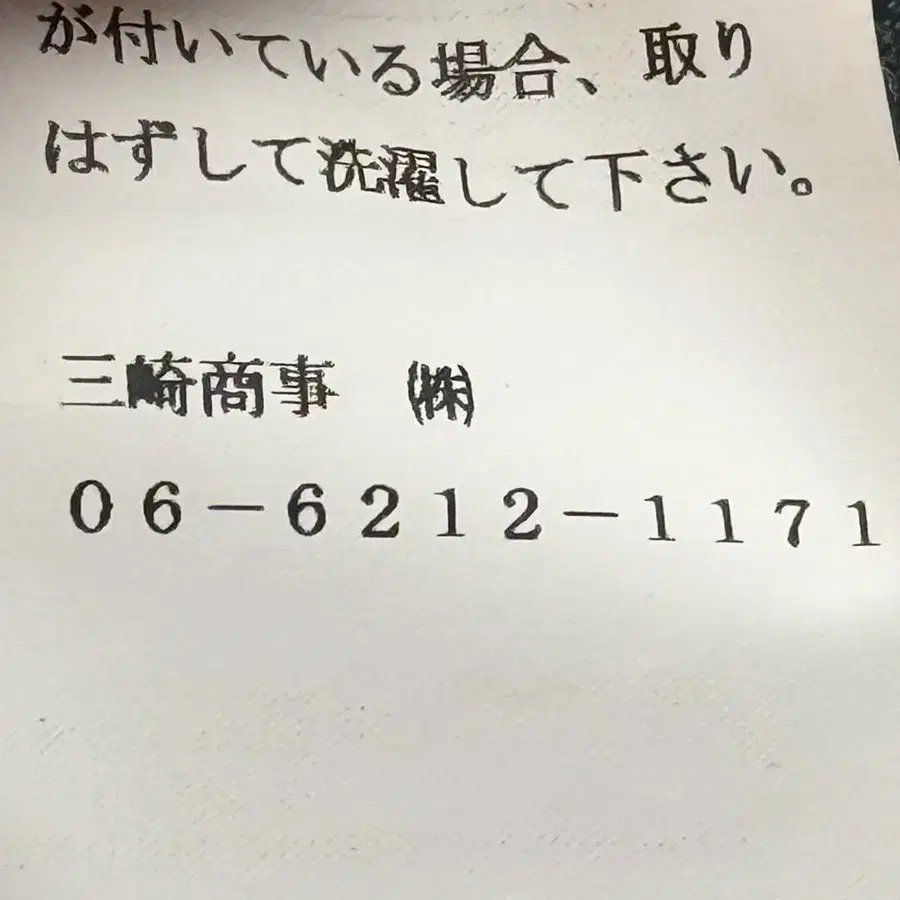 が付いている場合、取り
はずして洗濯して下さい。
三崎商事　㈱
０６－６２１２－１１７１